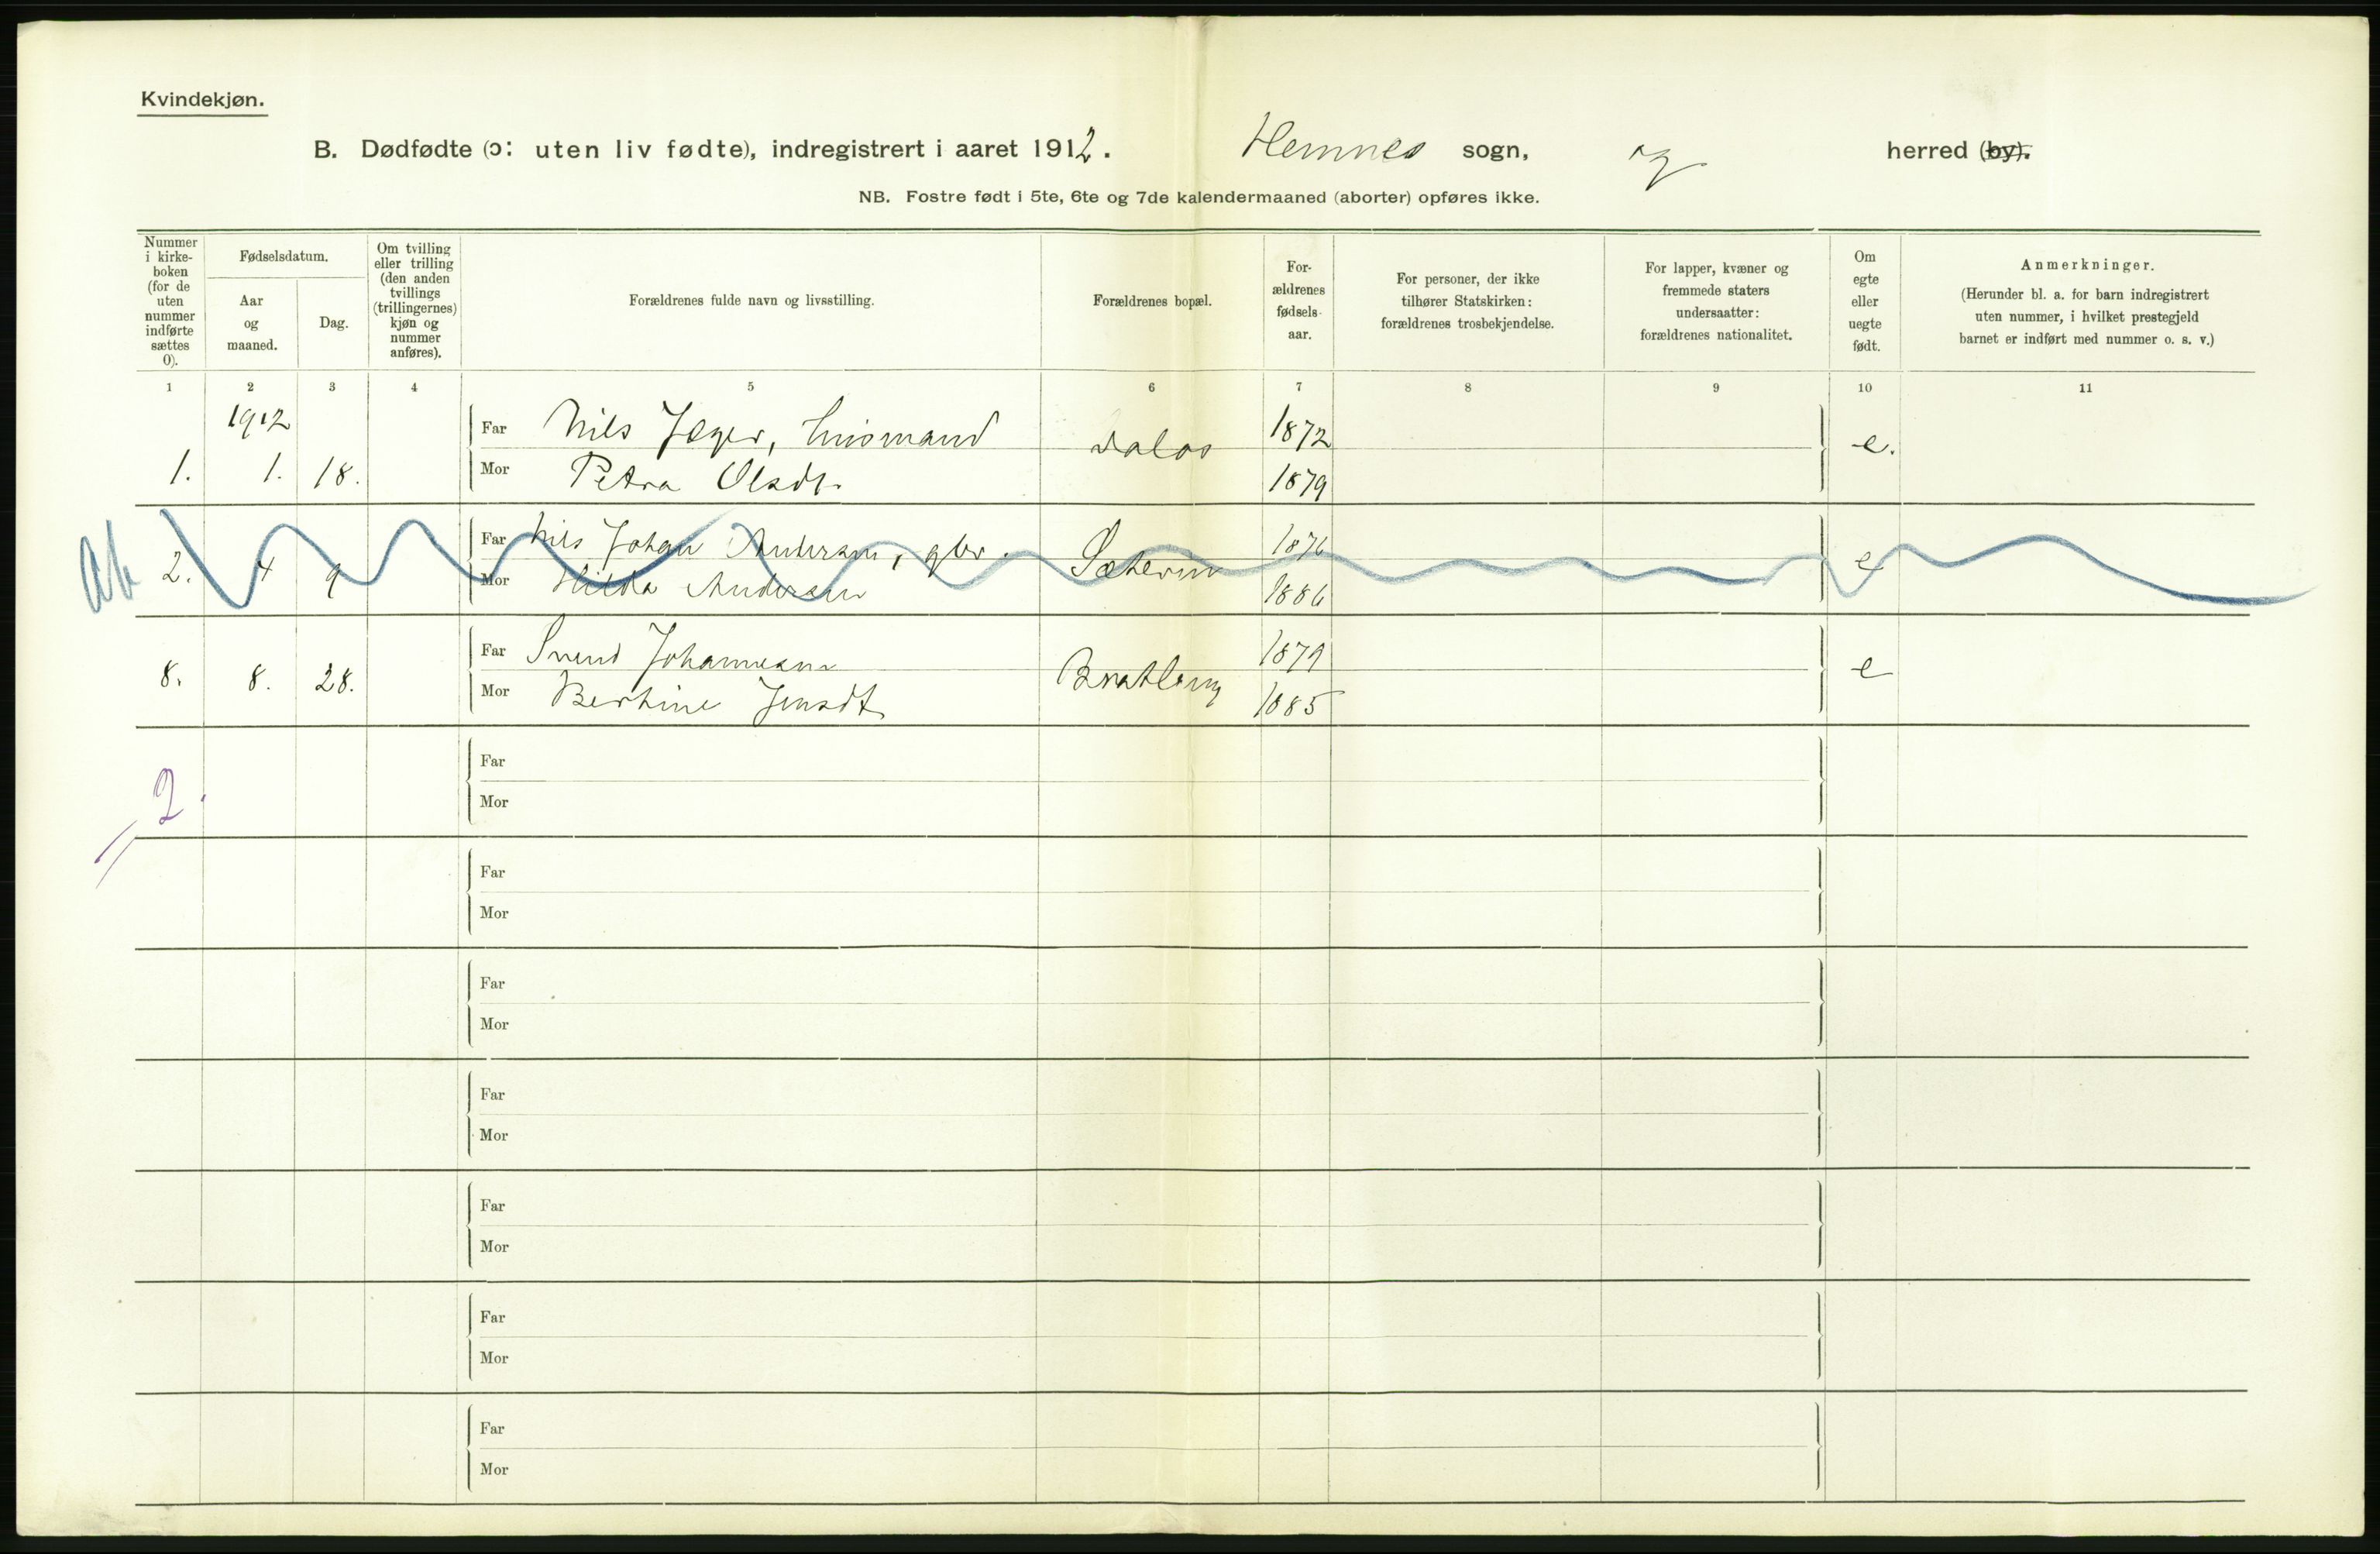 Kvindekjøn.
B. Dødfødte (ɔ: uten liv fødte), indregistrert i aaret 1912. Hemnes sogn, og herred (by).
NB. Fostre født i 5te, 6te og 7de kalendermaaned (aborter) opføres ikke.
Nummer i kirke-boken (for de uten nummer indførte sættes 0).
Fødselsdatum.
Aar og maaned.
Dag.
Om tvilling eller trilling (den anden tvillings (trillingernes) kjøn og nummer anføres).
Forældrenes fulde navn og livsstilling.
Forældrenes bopæl.
For-ældrenes fødsels-aar.
For personer, der ikke tilhører Statskirken: forældrenes trosbekjendelse.
For lapper, kvæner og fremmede staters undersaatter: forældrenes nationalitet.
Om egte eller uegte født.
Anmerkninger.
(Herunder bl. a. for barn indregistrert uten nummer, i hvilket prestegjeld barnet er indført med nummer o. s. v.)
1 2 3 4 5 6 7 8 9 10 11
1912
Far Nils Jæger, 1872
1. 1. 18. Mor Petra Olsdt. 1879 e.
Ab
Far Nils Johan Andersen, 1876
2. 4 9 Mor Hilda Andersen 1886 e
Far Svend Johannesen 1879
8. 8. 28. Mor Bertine Jensdt 1885 e
Far
Mor
2
Far
Mor
Far
Mor
Far
Mor
Far
Mor
Far
Mor
Far
Mor